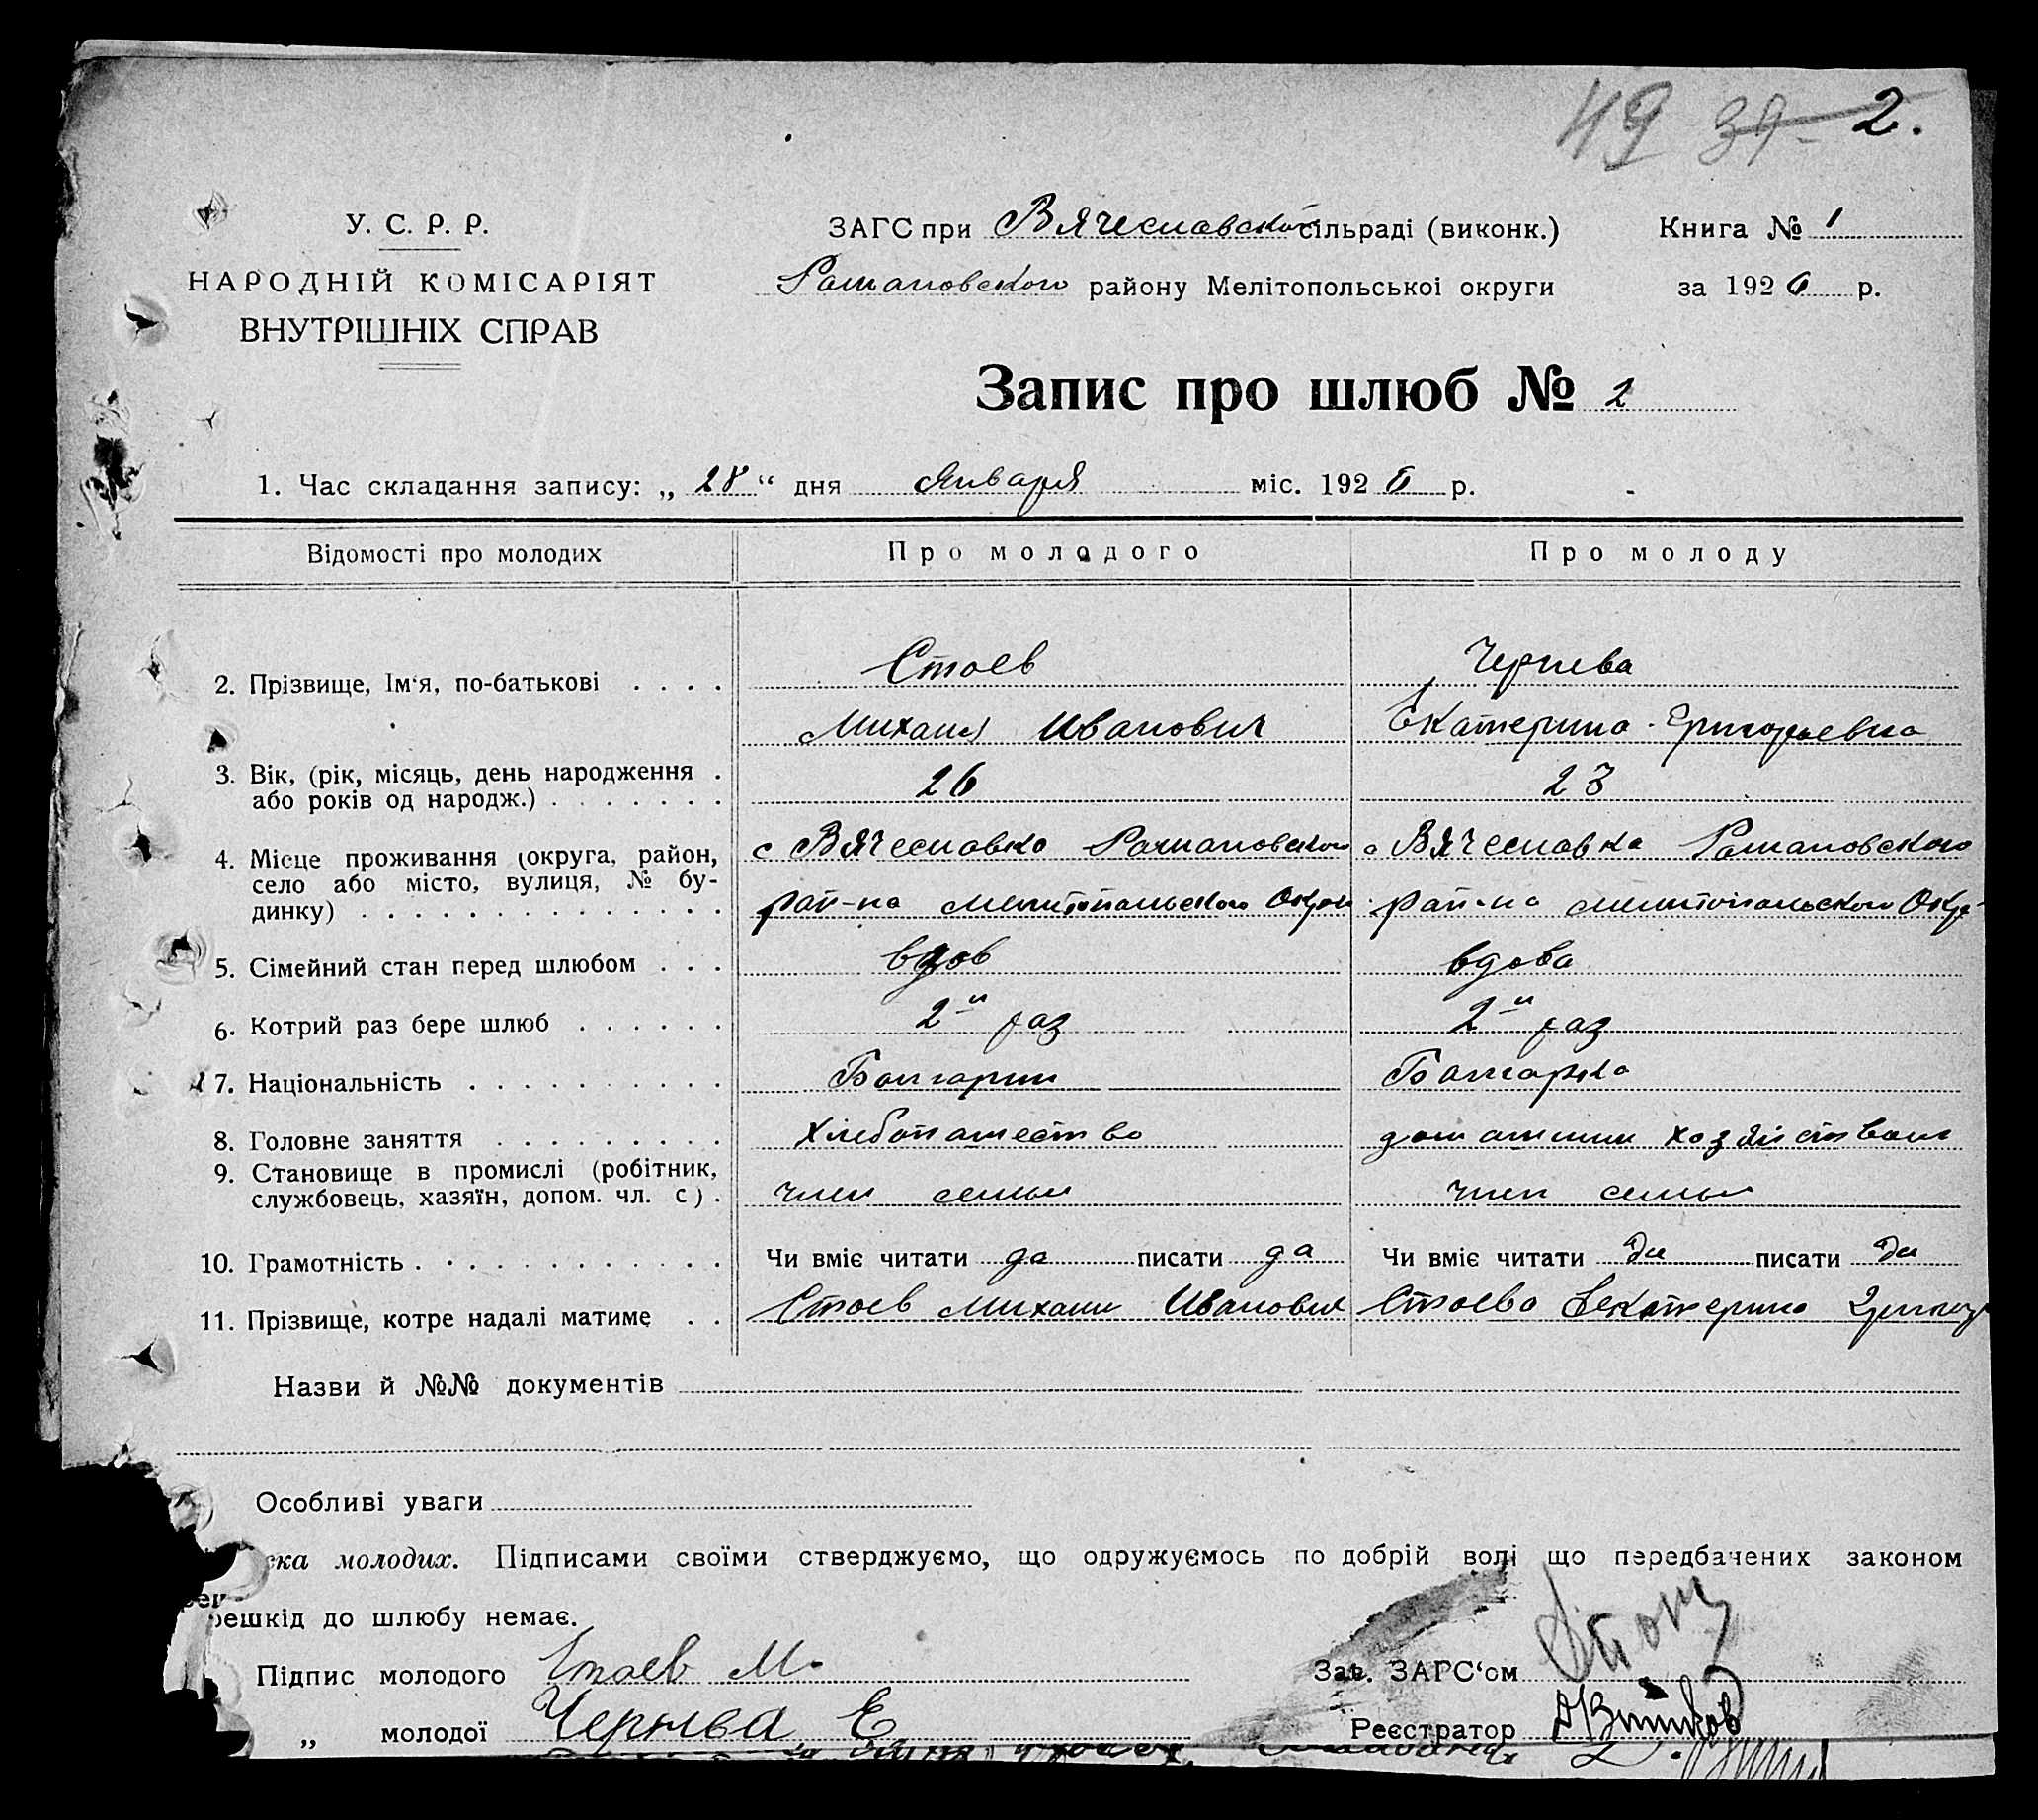 49 39 2.
У. С. Р. Р.
НАРОДНІЙ КОМІСАРІЯТ
ВНУТРІШНІХ СПРАВ
ЗАГС при Вячеславской сільраді (виконк.)
Романовского району Мелітопольскоі округи
Книга № 1
за 1926 р.
Запис про шлюб № 2
1. Час складання запису: „ 28 “ дня Января міс. 1926 р.
Відомості про молодих Про молодого Про молоду
2. Прізвище, Ім‘я, по-батькові . . . . Стоев Чернева
Михаил Иванович Екатерина Григорьевна
3. Вік, (рік, місяць, день народження .
або років од народж.) . . . . . . . 26 23
4. Місце проживання (округа, район,
село або місто, вулиця, № бу-
динку) . . . . . . . . . . . . . . .
с Вячеславка Романовского с Вячеславка Романовского
рай-на Мелитопольского Округ рай-на Мелитопольского Окр
5. Сімейний стан перед шлюбом . . . вдов вдова
6. Котрий раз бере шлюб . . . . . . 2й раз 2й раз
7. Національність . . . . . . . . . . Болгарин Болгарка
8. Головне заняття . . . . . . . . . хлебопашество домашним хозяйством
9. Становище в промислі (робітник,
службовець, хазяїн, допом. чл. с) . член семьи член семьи
10. Грамотність . . . . . . . . . . . . Чи вміє читати да писати да Чи вміє читати да писати да
11. Прізвище, котре надалі матиме . . Стоев Михаил Иванович Стоева Екатерина
Назви й №№ документів
Особливі уваги
ска молодих. Підписами своїми стверджуємо, що одружуємось по добрій волі що передбачених законом
решкід до шлюбу немає.
Підпис молодого Стоев М.
„ молодої Чернева Е
Зав. ЗАГС‘ом
Реєстратор